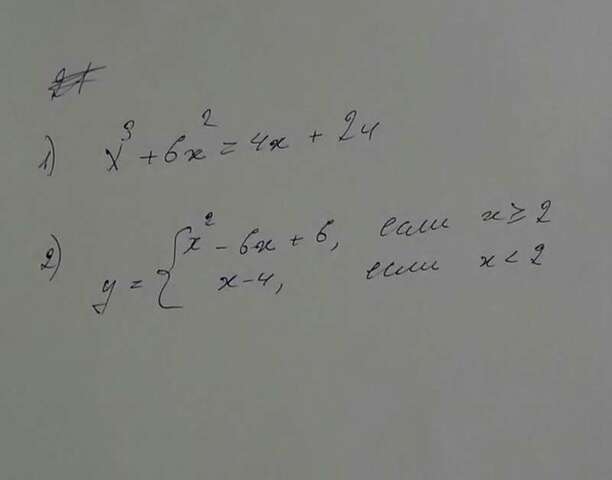 1) x³ + 6x² = 4x + 24
2) y = { x² - 6x + 6, если x ≥ 2
x - 4, если x < 2